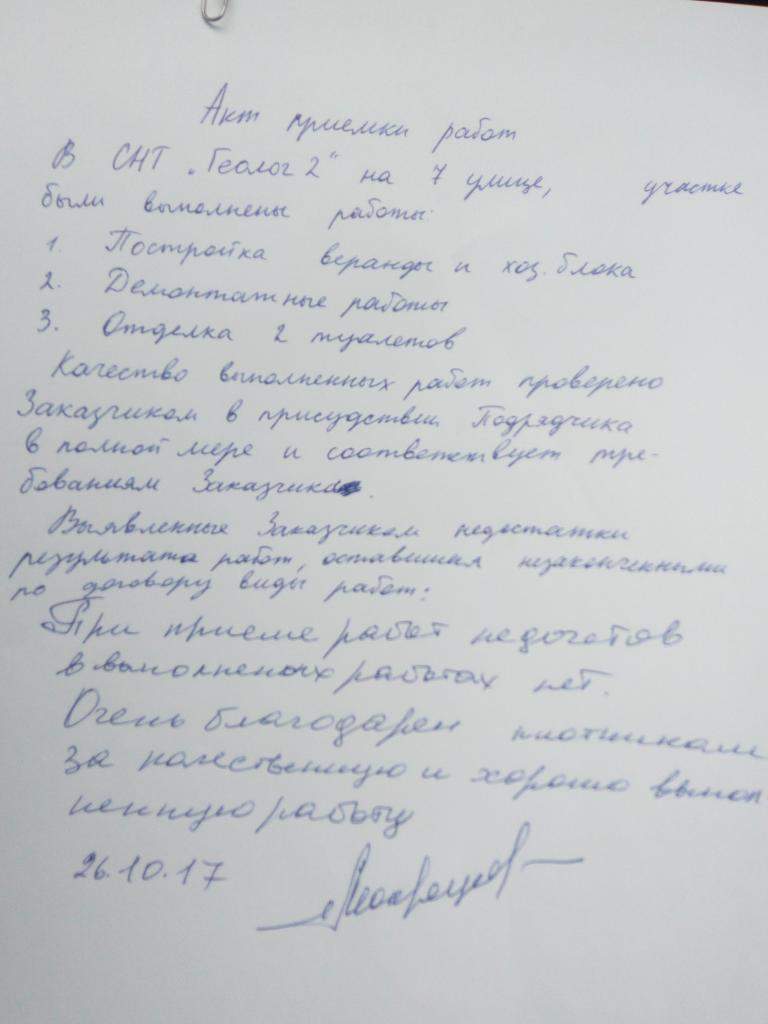 Акт приемки работ
В СНТ „Геолог 2" на 7 улице, участке
были выполнены работы:
1. Постройка веранды и хоз. блока
2. Демонтатные работы
3. Отделка 2 туалетов
Качество выполненных работ проверено
Заказчиком в присудствии Подрядчика
в полной мере и соответствует тре-
бованиям Заказчика.
Выявленные Заказчиком недостатки
результата работ, оставшимся незаконченными
по договору виды работ:
При приеме работ недочетов
в выполненых работах нет.
Очень благодарен плотникам
за качественную и хорошо выпол
ненную работу
26.10.17